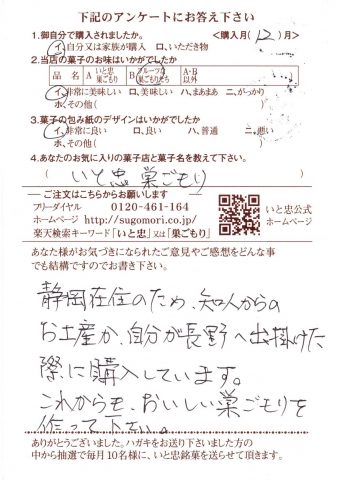 下記のアンケートにお答え下さい
1.御自分で購入されましたか。　<購入月(12)月>
イ.自分又は家族が購入　ロ、いただき物
2.当店の菓子のお味はいかがでしたか
品 名　A いと忠 巣ごもり　B フルーツな 巣ごもりたち　A・B 以外
イ.非常に美味しい　ロ、美味しい　ハ、まあまあ　ニ、がっかり
ホ、その他(　)
3.菓子の包み紙のデザインはいかがでしたか
イ.非常に良い　ロ、良い　ハ、普通　ニ、悪い
ホ、その他(　)
4.あなたのお気に入りの菓子店と菓子名を教えて下さい。
(いと忠 巣ごもり　)
ご注文はこちらからお願いします
フリーダイヤル　0120-461-164
ホームページ　http://sugomori.co.jp/
楽天検索キーワード「いと忠」又は「巣ごもり」
いと忠公式
ホームページ
あなた様がお気づきになられたご意見やご感想をどんな事
でも結構ですのでお書き下さい。
静岡在住のため、知人からの
お土産か、自分が長野へ出掛けた
際に購入しています。
これからも、おいしい巣ごもりを
作って下さい。
ありがとうございました。ハガキをお送り下さいました方の
中から抽選で毎月10名様に、いと忠銘菓を送らせて頂きます。